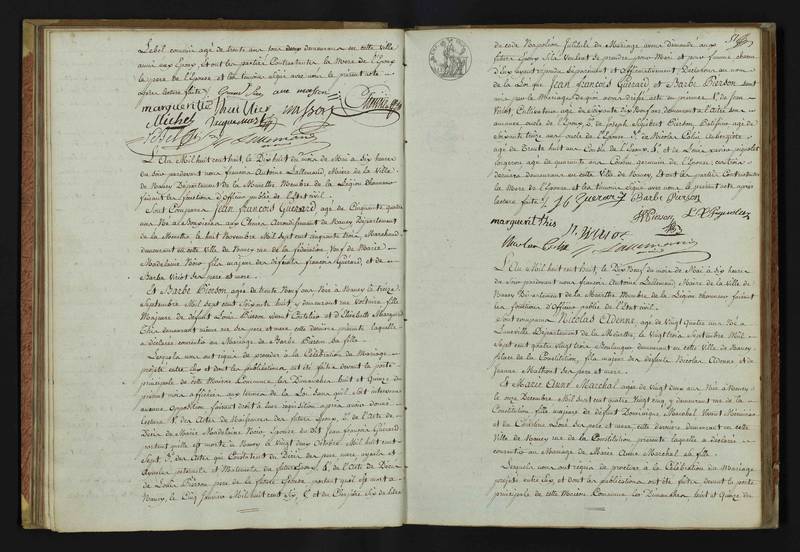 Lebel cousin agé de trente ans tous deux demeurans en cette ville
amis aux Epoux, Et ont les parties Contractantes, la Mere de l'Epoux
le pere de l'Epouse et les temoins signé avec nous le present acte
après lecture faite
marguerite thuillier masson
Michel
L'An Mil huit cent huit, le Dix huit du mois de Mai à Six heures
du Soir pardevant nous françois Antoine Lallemand, Maire de la Ville
de Nancy Département de la Meurthe, Membre de la Légion d'honneur
faisant les fonctions d'Officier public de l'Etat civil.
Sont Comparus Jean François Guérard agé de Cinquante quatre
ans Né à Arrondissement de Nancy Département
de la Meurthe le huit Novembre Mil Sept cent cinquante trois, Marchand
demeurant en cette Ville de Nancy rue de la fédération, Veuf de Marie
Madelaine fils majeur des défunts françois Guérard, et de
Barbe Viriot ses pere et mere.
Et Barbe Pierson agée de trente Neuf ans Née à Nancy le treize
Septembre Mil Sept cent Soixante huit, y demeurant rue fille
Majeure de défunt Louis Pierson et d'Elisabeth Marguerite
demeurant même rue ses pere et mere, cette dernière présente laquelle
a déclaré consentir au Mariage de Barbe Pierson sa fille.
Lesquels nous ont requis de procéder à la Célébration du Mariage
projeté entre Eux, et dont les publications ont été faites devant la porte
principale de cette Maison Commune les Dimanches huit et Quinze du
présent mois affichées aux termes de la Loi Sans qu'il soit intervenu
aucune opposition faisant droit à leur réquisition après avoir donné
lecture 1.° des Actes de Naissances des futurs Epoux, 2.° de l'Acte de
Décès de Marie Madelaine Epouse du dit Jean françois Guérard
portant qu'elle est morte à Nancy le Vingt deux Octobre Mil huit cent
Sept, 3.° des Actes qui Constatent le Décès des pere, mere, ayeuls et
Ayeules paternels et Maternels du futur Epoux, 4.° de l'Acte de Décès
de Louis Pierson pere de la future Epouse portant qu'il est mort à
Nancy, le Cinq Janvier Mil huit cent Six, 5.° et du Chapitre Six du titre
51
du code Napoléon Intitulé du Mariage avons demandé aux
futurs Epoux s'ils veulent se prendre pour Mari et pour femme chacun
d'eux ayant répondu Séparément et Affirmativement Déclarons au nom
de la Loi que Jean françois Guérard et Barbe Pierson sont
unis par le Mariage de quoi avons dressé acte en presence 1.° de Jean
Cultivateur agé de Soixante
oncle de l'Epoux, 2.° de Joseph Pierson, agé de
Soixante treize ans oncle de l'Epouse, 3.° de Nicolas Colin Aubergiste
agé de Trente huit ans Cousin de l'Epoux, 4.° et de Louis
agé de quarante ans Cousin germain de l'Epouse, ces trois
derniers demeurans en cette Ville de Nancy, Et ont les parties Contractantes
la Mere de l'Epouse et les temoins Signé avec nous le présent acte après
lecture faite J f Guerard Barbe Pierson
marguerit
L'An Mil huit cent huit, le Dix Neuf du mois de Mai à Six heures
du Soir pardevant nous françois Antoine Lallemand, Maire de la Ville de
Nancy Département de la Meurthe Membre de la Légion d'honneur faisant
les fonctions d'Officier public de l'Etat civil.
Sont comparus Nicolas Adenne, agé de Vingt Quatre ans Né à
Lunéville Département de la Meurthe, le Vingt trois Septembre Mil
Sept cent quatre vingt trois, Boulanger demeurant en cette Ville de Nancy
place de la Constitution, fils majeur des défunts Nicolas Adenne et de
Jeanne Mathont ses pere et mere.
Et Marie Anne Marchal agée de Vingt deux ans Née à Nancy
le onze Décembre Mil Sept cent quatre Vingt Cinq y demeurant rue de la
Constitution fille majeure de défunt Dominique Marchal
et de Charlotte Loué ses pere et mere, cette derniere demeurant en cette
Ville de Nancy rue de la Constitution présente laquelle a déclaré
consentir au Mariage de Marie Anne Marchal sa fille.
Lesquels nous ont requis de procéder à la Célébration du Mariage
projeté entre Eux, et dont les publications ont été faites devant la porte
principale de cette Maison Commune les Dimanches, huit et Quinze du